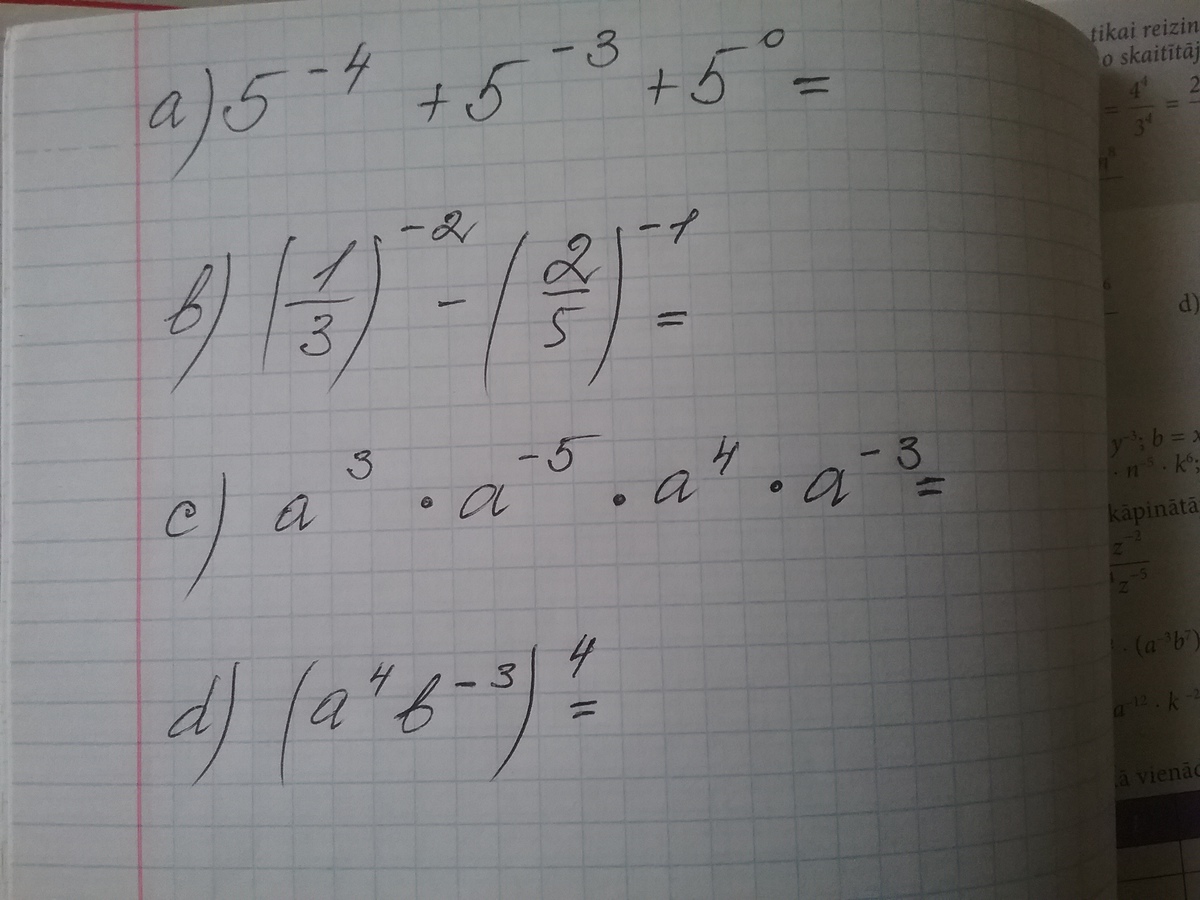 a) 5⁻⁴ + 5⁻³ + 5⁰ =
b) (1/3)⁻² - (2/5)⁻¹ =
c) a³ · a⁻⁵ · a⁴ · a⁻³ =
d) (a⁴b⁻³)⁴ =
tikai reizin
o skaitītāj
= 4⁴/3⁴ = 2
d)
y⁻³; b = x
· n⁻⁵ · k⁶;
kāpinātā
z⁻²
z⁻⁵
· (a⁻³b⁷)
a⁻¹² · k⁻
ā vienād